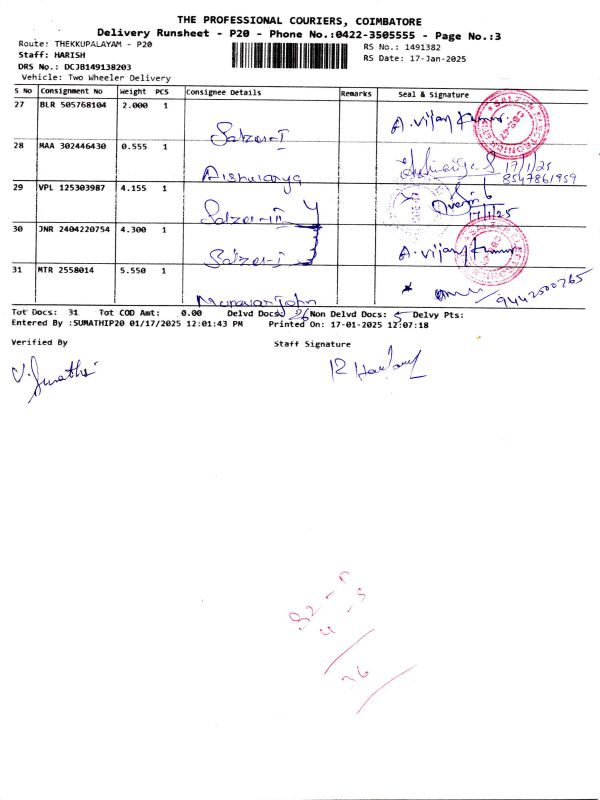 THE PROFESSIONAL COURIERS, COIMBATORE
Delivery Runsheet - P20 - Phone No.:0422-3505555 - Page No.:3
Route: THEKKUPALAYAM - P20
RS No.: 1491382
Staff: HARISH
RS Date: 17-Jan-2025
DRS No.: DCJB149138203
Vehicle: Two Wheeler Delivery
S No Consignment No Weight PCS Consignee Details Remarks Seal & Signature
27 BLR 505768104 2.000 1 Salzer-I A.Vijay Kumar
28 MAA 302446430 0.555 1 Aishwarya 17/1/25
8547861959
29 VPL 125303987 4.155 1 Salzer-III 17/1/25
30 JNR 2404220754 4.300 1 Salzer-I A.Vijay Kumar
31 MTR 2558014 5.550 1 9442500265
Tot Docs: 31 Tot COD Amt: 0.00 Delvd Docs: 26 Non Delvd Docs: 5 Delvy Pts:
Entered By :SUMATHIP20 01/17/2025 12:01:43 PM Printed On: 17-01-2025 12:07:18
Verified By Staff Signature
V. Sumathi